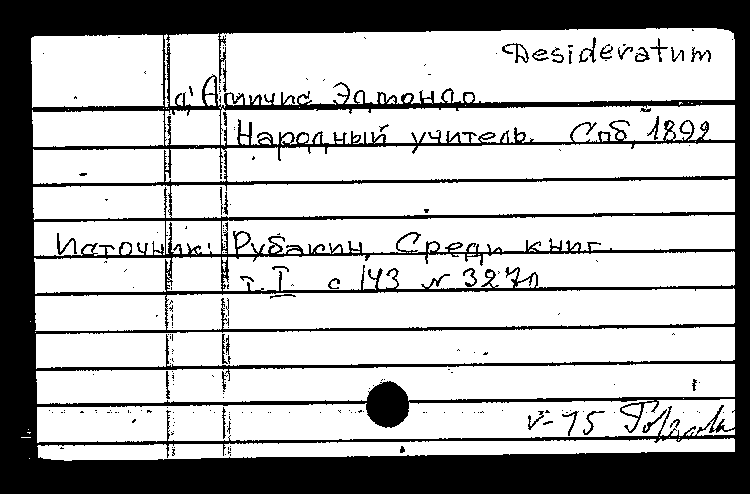 Desideratum
д'Амичис Эдмондо.
Народный учитель. Спб, 1892
Источник: Рубакин, Среди книг.
т. I с 143 № 327л
V-75